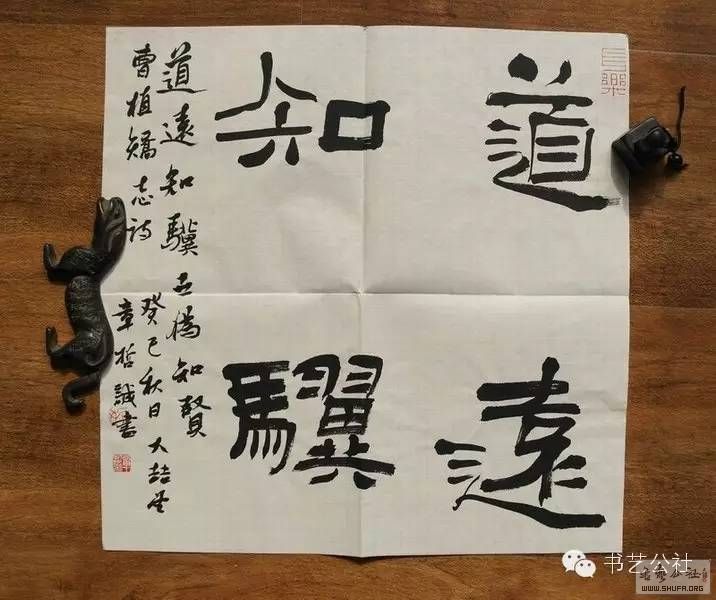 道遠
知驥
道遠知驥世偽知賢
曹植矯志詩
癸巳秋日大喆堂
章哲誠書
书艺公社
书艺公社
WWW.SHUFA.ORG